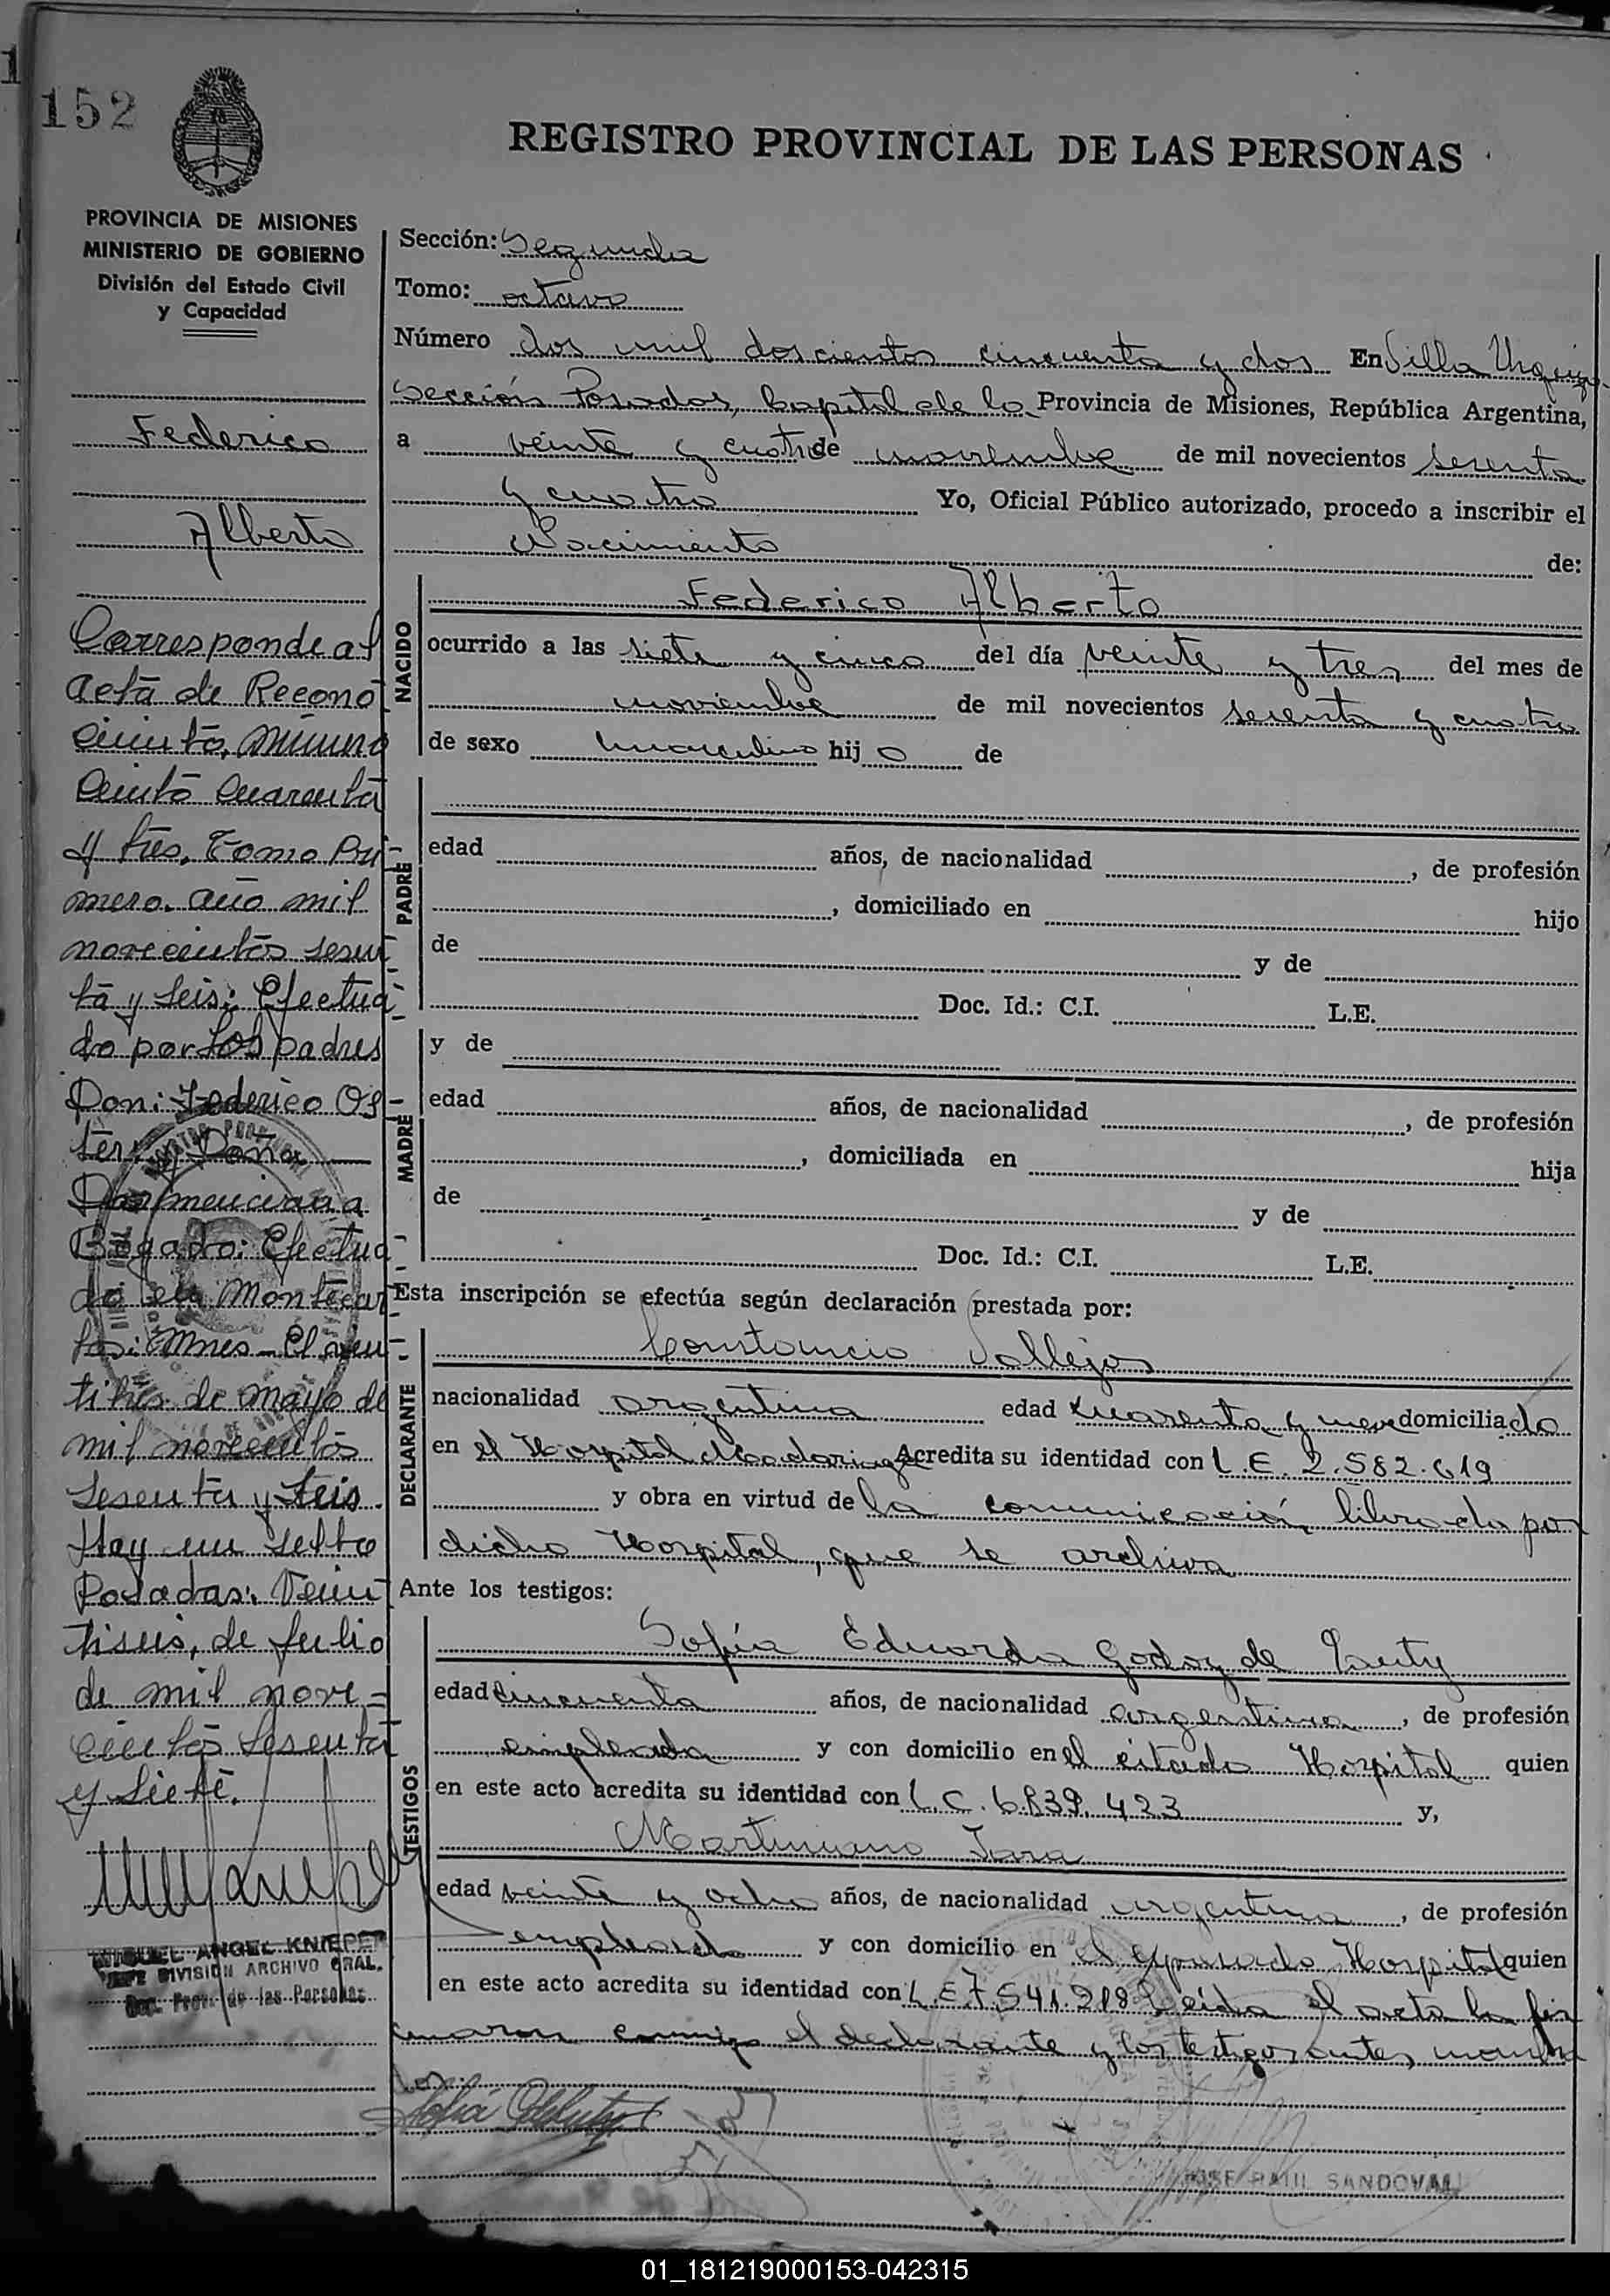 152
REGISTRO PROVINCIAL DE LAS PERSONAS
PROVINCIA DE MISIONES
MINISTERIO DE GOBIERNO
División del Estado Civil
y Capacidad
Federico
Alberto
Corresponde al
acta de Recono
cimiento, número
Ciento Cuarenta
y tres. Tomo Pri-
mero. año mil
novecientos sesen
ta y seis: Efectua
do por los padres
Don: Federico Os-
ter y Doña
Bogado: Efectua
do en Montecar
los: Mnes. El vein-
titrés de mayo de
mil novecientos
sesenta y seis.
Hay un sello
Posadas: Vein
tiseis, de julio
de mil nove=
cientos sesenta
y siete.
MIGUEL ANGEL KNIEPER
JEFE DIVISION ARCHIVO GRAL.
Reg. Prov. de las Personas
Sección: Segunda
Tomo: octavo
Número dos mil doscientos cincuenta y dos En Villa Urquiza
Sección Posadas, Capital de la Provincia de Misiones, República Argentina,
a veinte y cuatro de noviembre de mil novecientos sesenta
y cuatro Yo, Oficial Público autorizado, procedo a inscribir el
Nacimiento de:
NACIDO
Federico Alberto
ocurrido a las siete y cinco del día veinte y tres del mes de
noviembre de mil novecientos sesenta y cuatro
de sexo masculino hijo de
PADRE
edad años, de nacionalidad , de profesión
, domiciliado en hijo
de y de
Doc. Id.: C.I. L.E.
y de
MADRE
edad años, de nacionalidad , de profesión
, domiciliada en hija
de y de
Doc. Id.: C.I. L.E.
Esta inscripción se efectúa según declaración prestada por:
DECLARANTE
Constancio Vallejos
nacionalidad argentina edad cuarenta y nueve domiciliado
en el Hospital Madariaga Acredita su identidad con L.E. 2.582.619
y obra en virtud de la comunicación librada por
dicho Hospital, que se archiva
Ante los testigos:
TESTIGOS
Sofía Eduarda Godoy de
edad cincuenta años, de nacionalidad argentina, de profesión
empleada y con domicilio en el citado Hospital quien
en este acto acredita su identidad con L.C. 6.839.423 y,
Martiniano Jara
edad veinte y ocho años, de nacionalidad argentina, de profesión
empleado y con domicilio en el expresado Hospital quien
en este acto acredita su identidad con L.E. 7.541.218 Leída el acta la fir
maron conmigo el declarante y los testigos antes
dos.
JOSE RAUL SANDOVAL
01_181219000153-042315